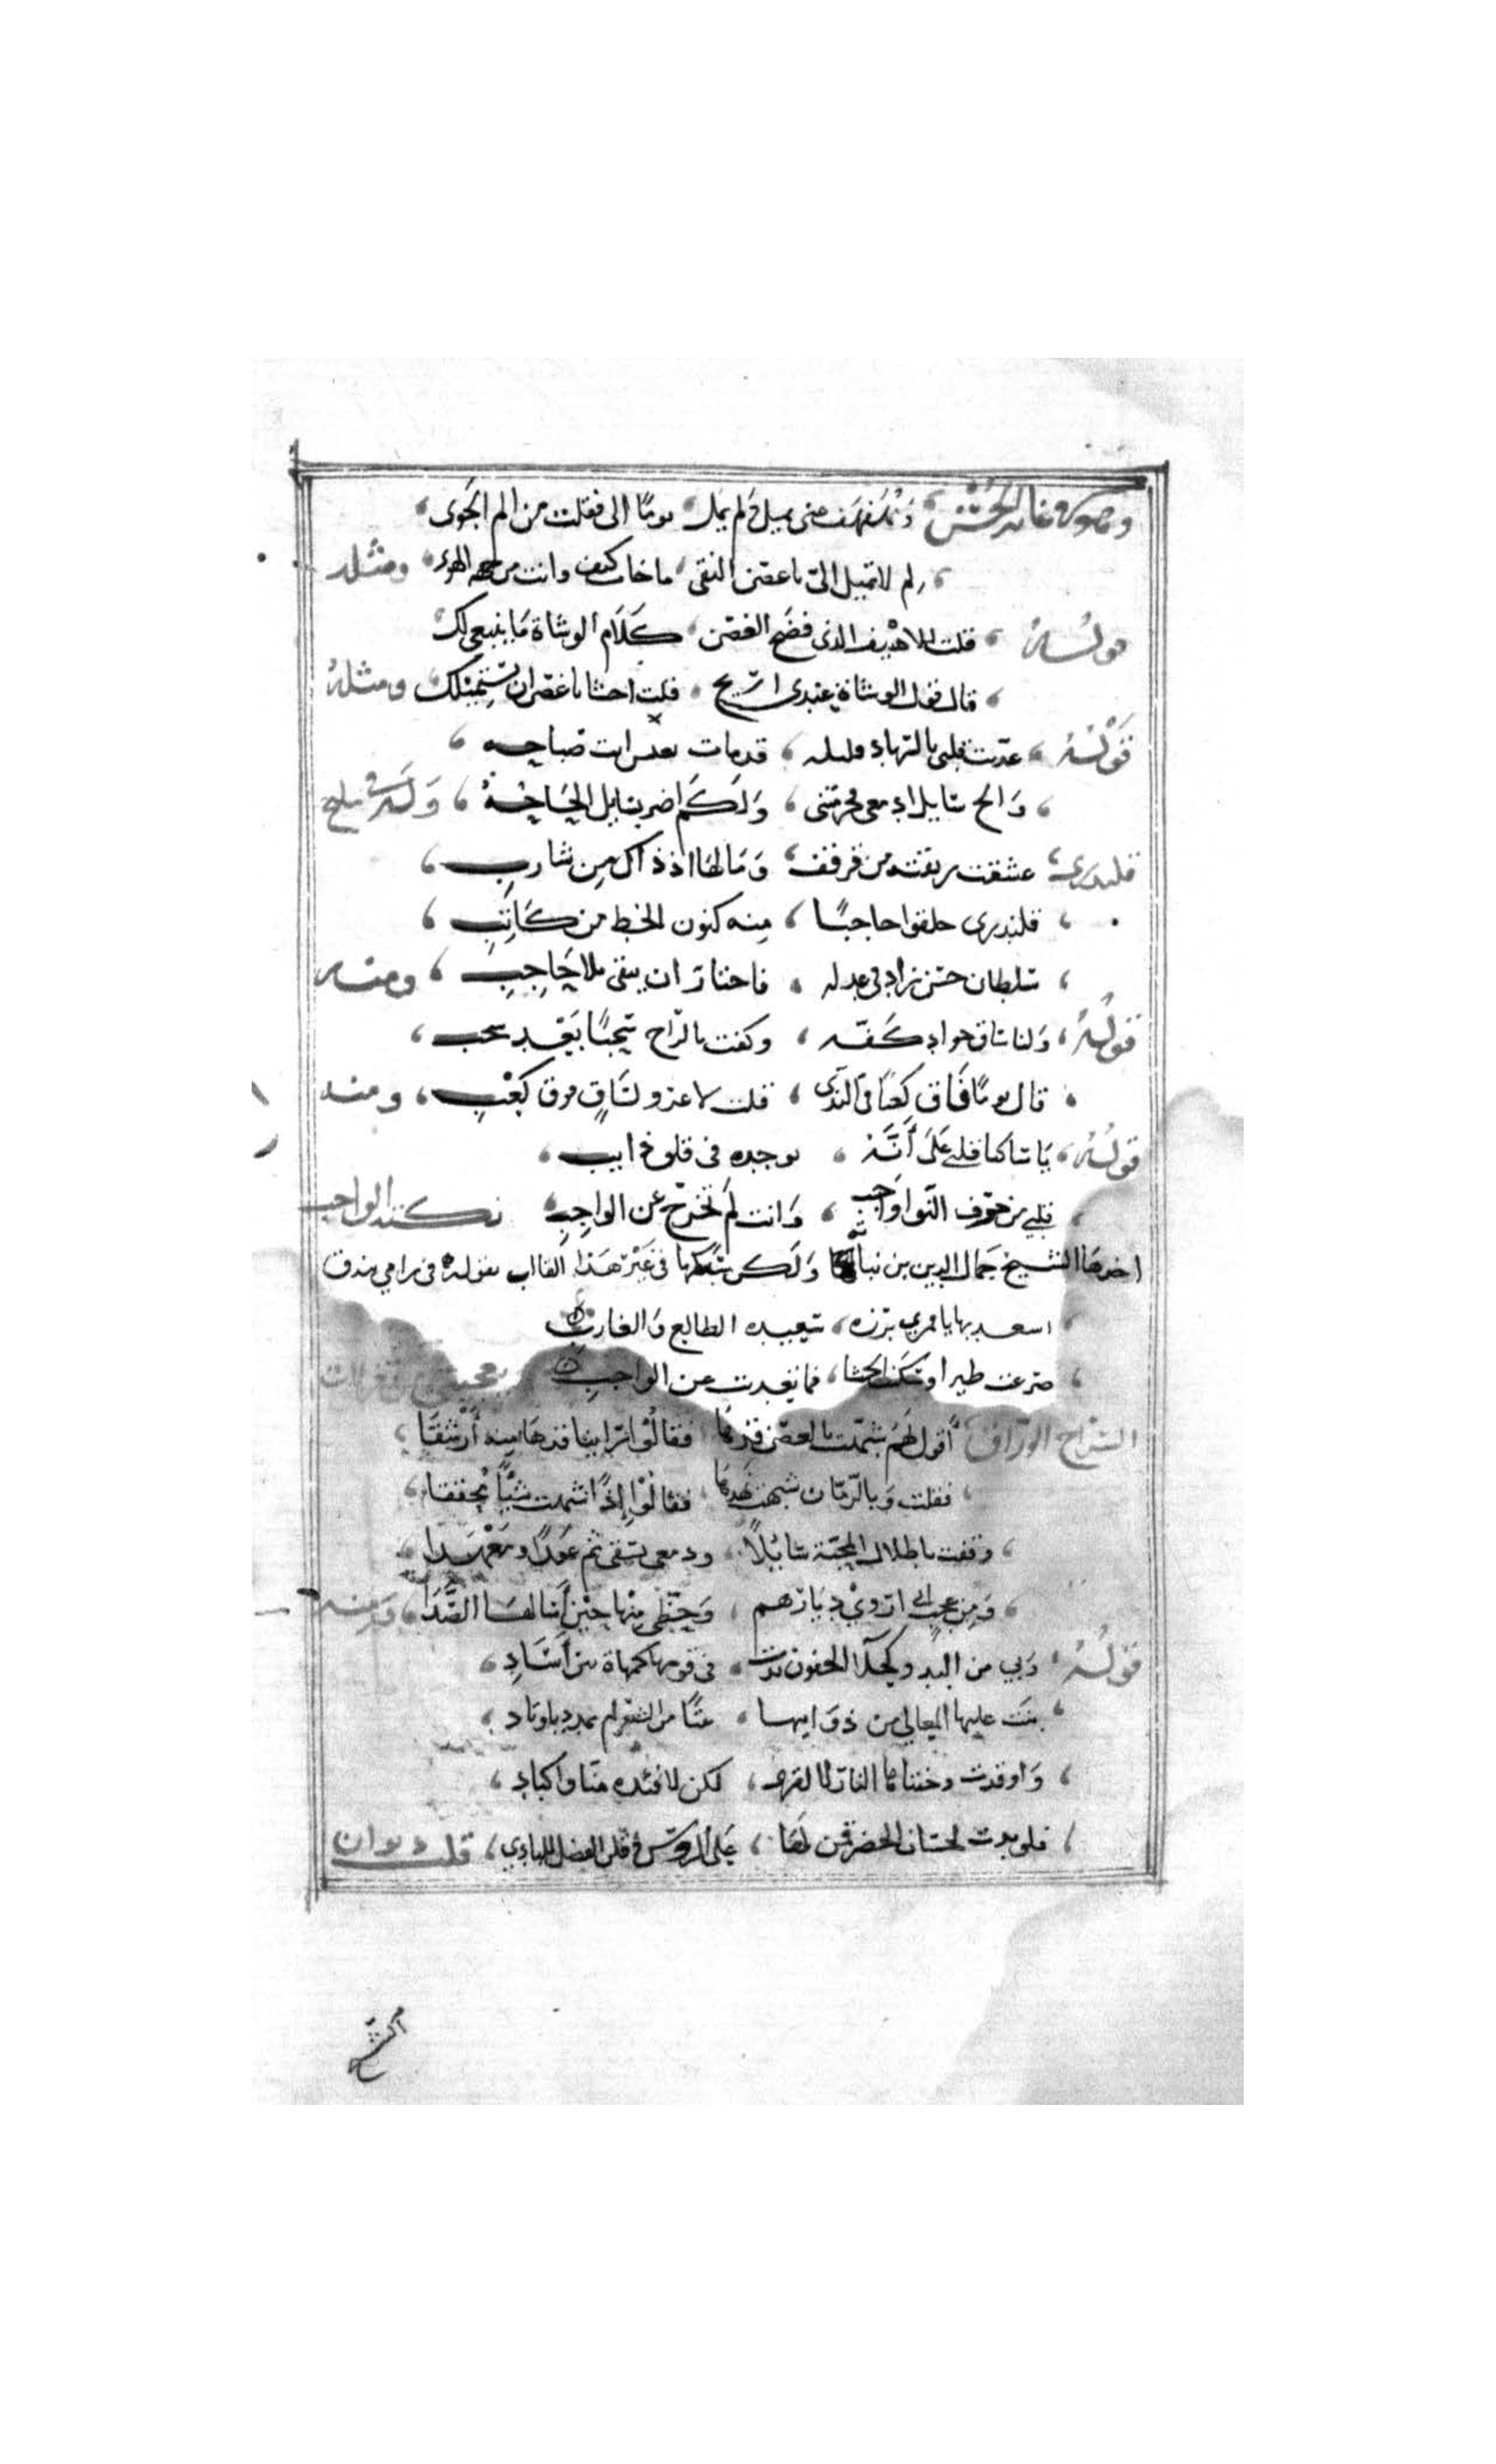 وهو في غاية الحسن ومهفهف عني يميل ولم يمل يوما الى فقلت من الم الجوى
لم لا تميل الى يا غصن النقى فاجاب كيف وانت من جهة الهوى ومثله
قوله قلت للاهيف الذي فضح الغصن كلام الوشاة ما ينبغي لك
قال قول الوشاة عندي ريح قلت اخشا يا غصن ان تستميلك ومثله
قوله عذبت قلبي بالنهاد قد مات صباحه
والح سايل ادمعي فحرمتني ولكم اضر بسايل الحاحه وله في مليح
قلندري عشقت من ريقته قرقفا وما لها اذ ذاك من شارب
قلندري حلقوا حاجبا منه كنون الخط من كاتب
سلطان حسن زاد في عدله فاختار ان يبقى بلا حاجب ومنه
قوله ولنا ساق جواد كفه وكفت بالراح سحبا بعد سحب
قال يوما فاق كعبا في الندى قلت لا غرو لساق فوق كعب ومنه
قوله يا ساكنا قلبي على أنه توجده في قلق ذايب
قلبي من خوف النوا واجب وانت لم تخرج عن الواجب نكتة الواجب
اخرها الشيخ جمال الدين بن نباتة ولكن سكبها في غير هذا القالب بقوله في رامي بندق
اسعد بها يا قمري برزه سعيده الطالع والغارب
صرعت طيرا وسكنت الحشا فما تعديت عن الواجب
السراج الوراق أقول لهم شبهت بالغصن قدها فقالوا اترا بنا قدها منه أرشقا
فقلت وبالرمان شبهت نهدها فقالوا إذا شبهت شيأ محققا
وقفت باطلال المحبة سائلا ودمعي يسقى ثم عهدا ومعهدا
ومن عجب اني اروي ديارهم وحظي منها حين أسالها الصدا ومنه
قوله وبي من البدو كحلاء الجفون بدت في قومها كمهاة بين أساد
بنت عليها المعالي من ذوايبها بيتا من الشعر لم يمدد باوتاد
واوقدت وجنتاها النار لا لقرى لكن لافئدة منا واكباد
فلو بدت لحسان الحضر قمن لها على الرؤس وقلن الفضل للبادي قلت ديوان
الشيخ